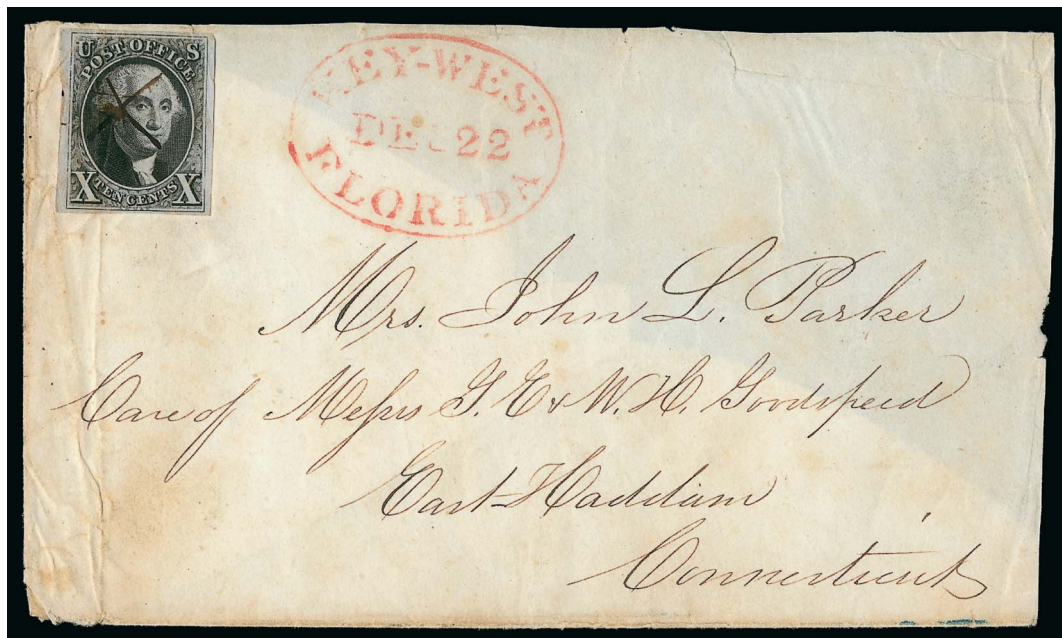 U S
POST OFFICE
X TEN CENTS X
KEY-WEST
DEC 22
FLORIDA
Mrs. John L. Parker
Care of Messrs G. E & W. H. Goodspeed
East-Haddam
Connecticut